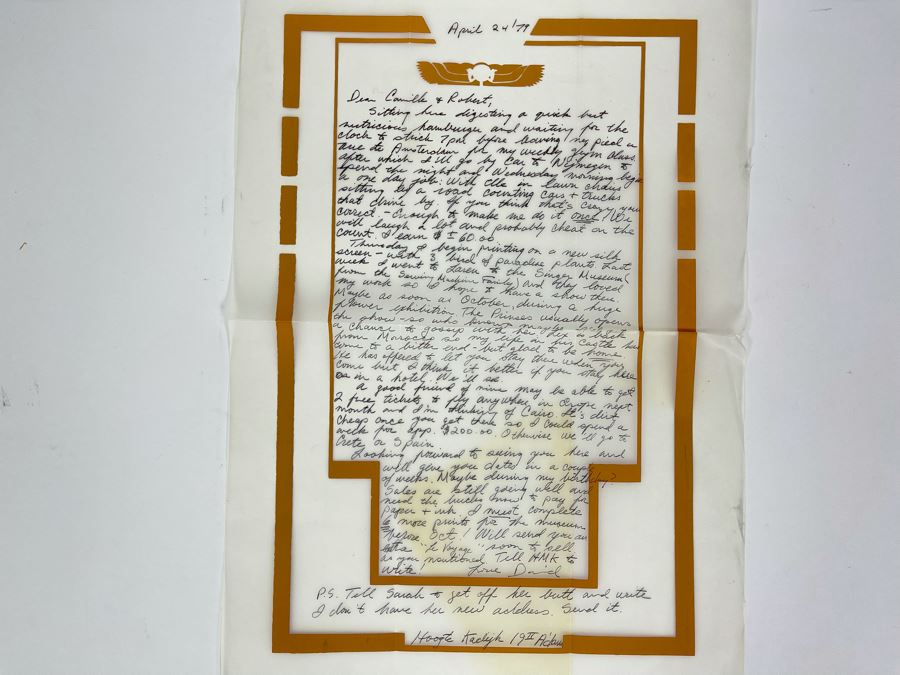 April 24/79
Dear Camille & Robert,
Sitting here digesting a quick but
nutricious hamburger and waiting for the
clock to strike 7pm before leaving my pied a
terre de Amsterdam for my weekly gym class
after which I'll go by car to Nijmegen to
spend the night and Wednesday morning begin
a one day job: With Elle in lawn chairs
sitting by a road counting cars + trucks
that drive by. If you think that's crazy your
correct. - Enough to make me do it once! We
will laugh a lot and probably cheat on the
count. I earn $ ± 60.00
Thursday I begin printing on a new silk
screen - with 3 bird of paradise plants. Last
week I went to Laren to the Singer Museum (
from the Sewing Machine Family) and they loved
my work so I hope to have a show there.
Maybe as soon as October during a huge
flower exhibition. The Prinses usually opens
the show - so who knows maybe I'll get
a chance to gossip with her. is back
from Morocco so my life in his castle has
come to a bitter end - but glad to be home.
He has offered to let you stay there when you
come but I think it better if you stay here
or in a hotel. We'll see.
A good friend of mine may be able to get
2 free tickets to fly anywhere in Europe next
month and I'm thinking of Cairo. It's dirt
cheap once you get there so I could spend a
week for app. $200.00. Otherwise we'll go to
Crete or Spain
Looking forward to seeing you here and
will give you dates in a couple
of weeks. Maybe during my birthday?
Sales are still going well and
need the bucks now to pay for
paper + ink. I must complete
6 more prints for the museum
before Oct.! Will send you an
extra "Le Voyage" soon to sell
as you mentioned. Tell HMK to
write! Love David
P.S. Tell Sarah to get off her butt and write
I don't have her new address. Send it.
Hoogte Kadijk 19II A'dam